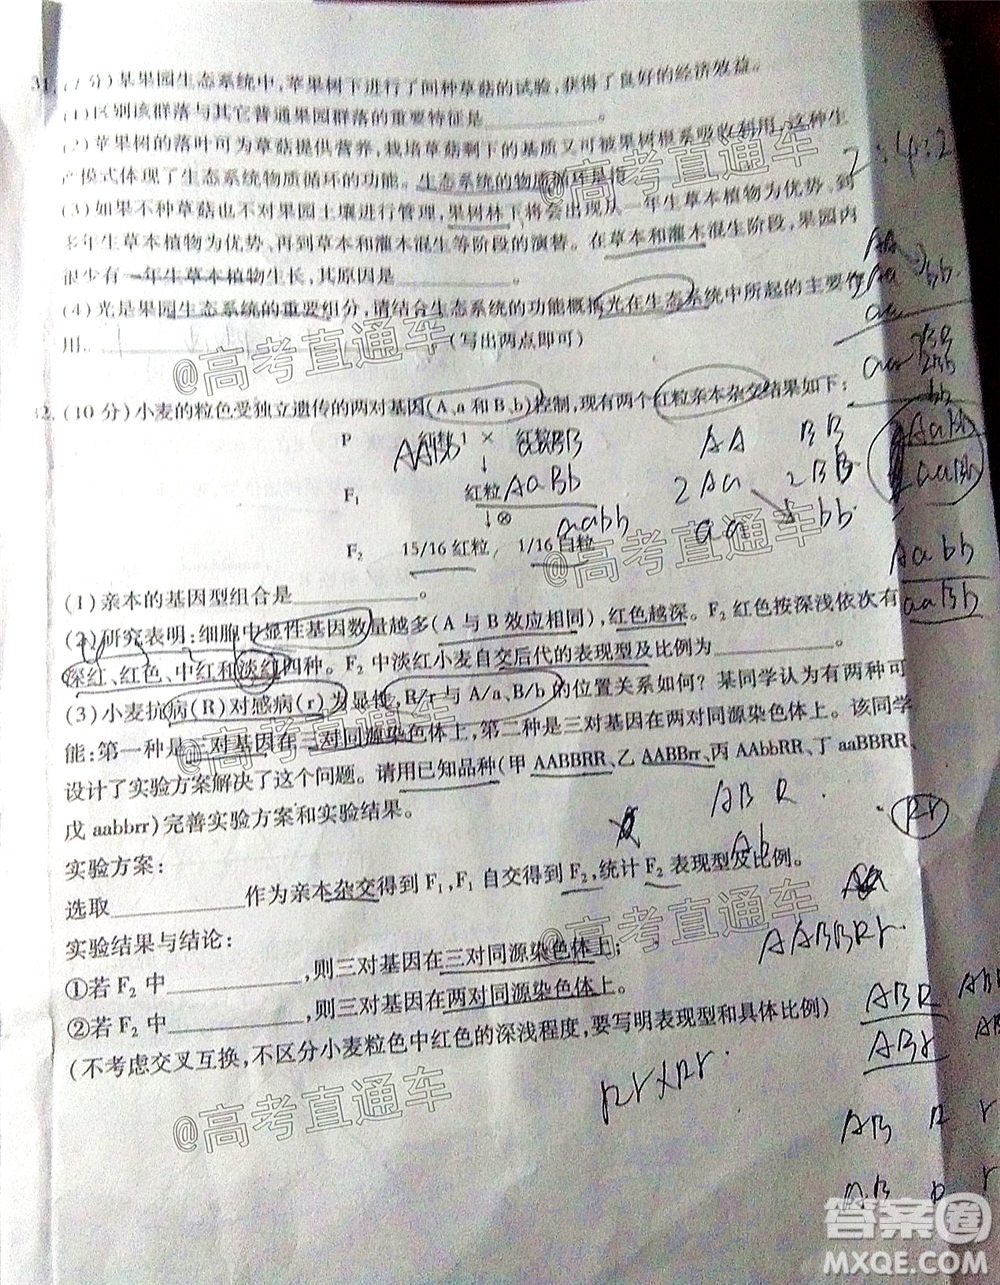 31.(7 分)某果园生态系统中,苹果树下进行了间种草菇的试验,获得了良好的经济效益。
(1)区别该群落与其它普通果园群落的重要特征是____________。
(2)苹果树的落叶可为草菇提供营养,栽培草菇剩下的基质又可被果树根系吸收利用,这种生
产模式体现了生态系统物质循环的功能。生态系统的物质循环是指
(3)如果不种草菇也不对果园土壤进行管理,果树林下将会出现从一年生草本植物为优势,到
多年生草本植物为优势、再到草本和灌木混生等阶段的演替。在草本和灌木混生阶段,果园内
很少有一年生草本植物生长,其原因是____________。
(4)光是果园生态系统的重要组分,请结合生态系统的功能概括光在生态系统中所起的主要作
用:____________(写出两点即可)
2:4:2
32.(10 分)小麦的粒色受独立遗传的两对基因(A、a 和 B、b)控制,现有两个红粒亲本杂交结果如下:
P 红粒 1 × 红粒
AAbb aaBB
F₁ 红粒 AaBb
↓⊗ aabb
F₂ 15/16 红粒, 1/16 白粒
AA BB
2Aa 2Bb
aa bb
Aabb
aaBb
(1)亲本的基因型组合是____________。
(2)研究表明:细胞中显性基因数量越多(A 与 B 效应相同),红色越深。F₂ 红色按深浅依次有
深红、红色、中红和淡红四种。F₂ 中淡红小麦自交后代的表现型及比例为____________。
(3)小麦抗病(R)对感病(r)为显性,R/r 与 A/a、B/b 的位置关系如何?某同学认为有两种可
能:第一种是三对基因在三对同源染色体上,第二种是三对基因在两对同源染色体上。该同学
设计了实验方案解决了这个问题。请用已知品种(甲 AABBRR、乙 AABBrr、丙 AAbbRR、丁 aaBBRR、
戊 aabbrr)完善实验方案和实验结果。
ABR
Rr
实验方案:
Ab
选取____________作为亲本杂交得到 F₁,F₁ 自交得到 F₂,统计 F₂ 表现型及比例。
实验结果与结论:
AABBRr.
①若 F₂ 中____________,则三对基因在三对同源染色体上;
②若 F₂ 中____________,则三对基因在两对同源染色体上。
ABR
ABr
(不考虑交叉互换,不区分小麦粒色中红色的深浅程度,要写明表现型和具体比例)
Rr×Rr.
AB R r
AB R r
@高考直通车
@高考直通车
@高考直通车
@高考直通车
@高考直通车
@高考直通车
@高考直通车
答案圈
MXQE.COM